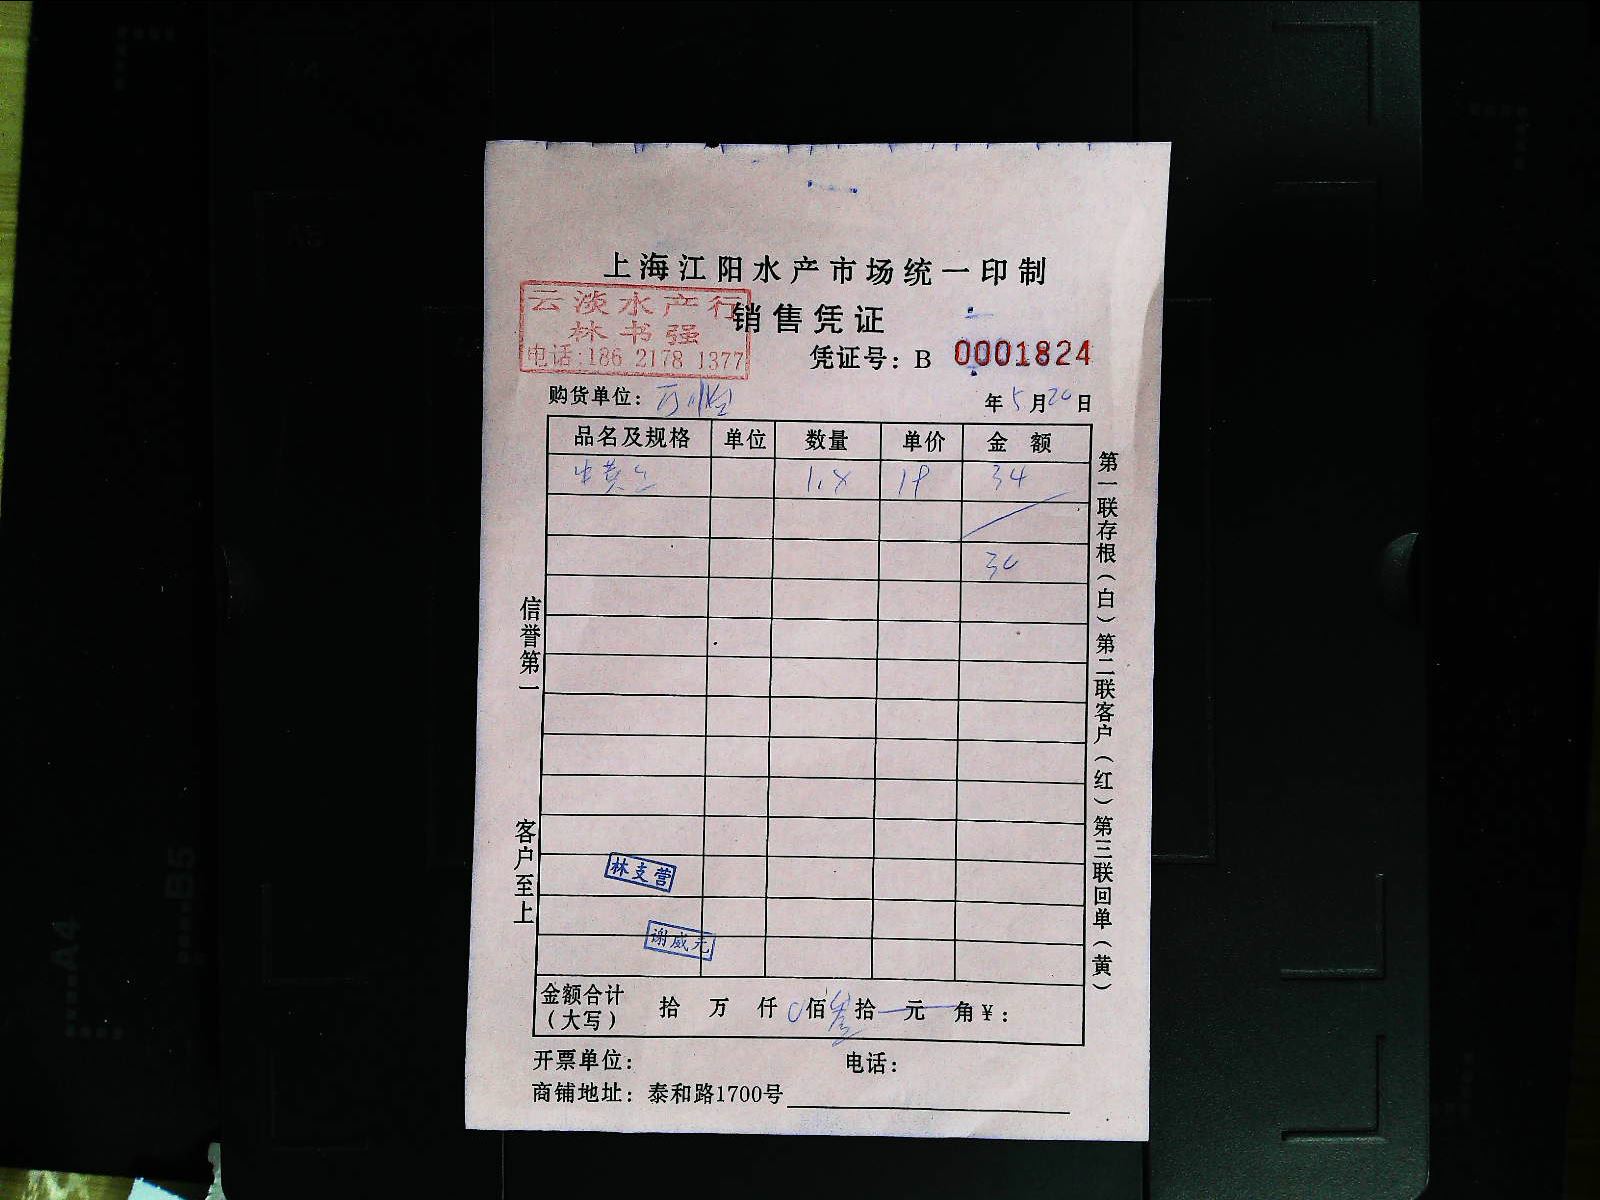 上海江阳水产市场统一印制
云淡水产行
林书强
电话:186 2178 1377
销售凭证
凭证号：B 0001824
购货单位：
年5月20日
品名及规格 单位 数量 单价 金额
1.8 19 34
30
信誉第一
客户至上
第一联存根（白）第二联客户（红）第三联回单（黄）
林支营
谢威元
金额合计（大写） 拾 万 仟 0佰叁拾 元 角¥：
开票单位： 电话：
商铺地址：泰和路1700号
A4
B5